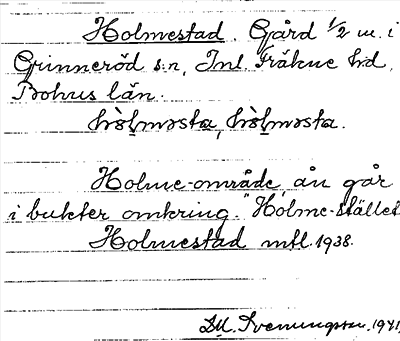 Holmestad. Gård 1/2 m. i
Grinneröd s:n, Inl. Fräkne hd,
Bohus län.
hòl̥məsta, hòl̥məsta.
Holme-område, ån går
i bukter omkring. "Holme-stället
Holmestad mtl. 1938.
Svenungsson. 1941.